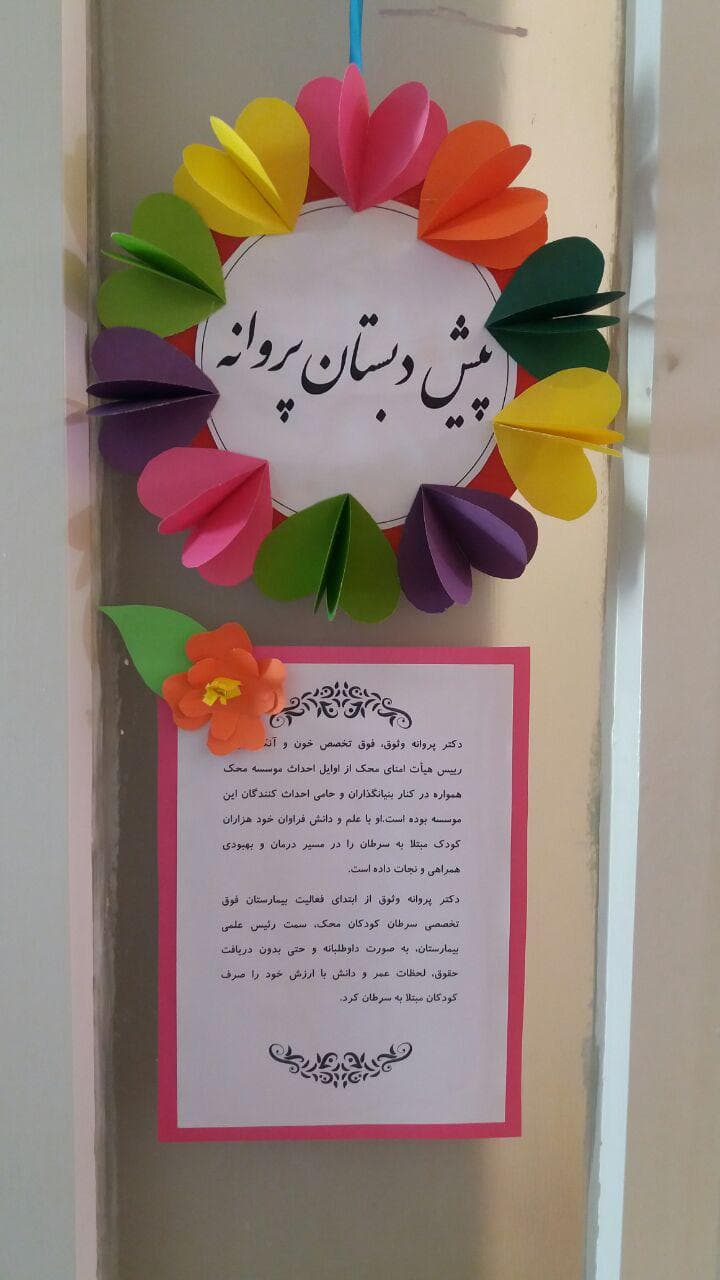 پیش دبستان پروانه
دکتر پروانه وثوق، فوق تخصص خون و
رییس هیأت امنای محک از اوایل احداث موسسه محک
همواره در کنار بنیانگذاران و حامی احداث کنندگان این
موسسه بوده است.او با علم و دانش فراوان خود هزاران
کودک مبتلا به سرطان را در مسیر درمان و بهبودی
همراهی و نجات داده است.
دکتر پروانه وثوق از ابتدای فعالیت بیمارستان فوق
تخصصی سرطان کودکان محک، سمت رئیس علمی
بیمارستان، به صورت داوطلبانه و حتی بدون دریافت
حقوق، لحظات عمر و دانش با ارزش خود را صرف
کودکان مبتلا به سرطان کرد.